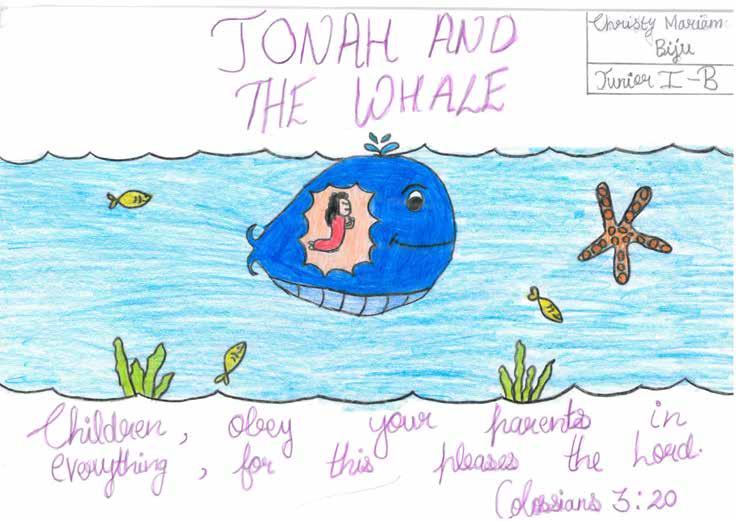 JONAH AND
THE WHALE
Christy Mariam
Biju
Junior I-B
Children, obey your parents in
everything, for this pleases the Lord.
Colossians 3:20